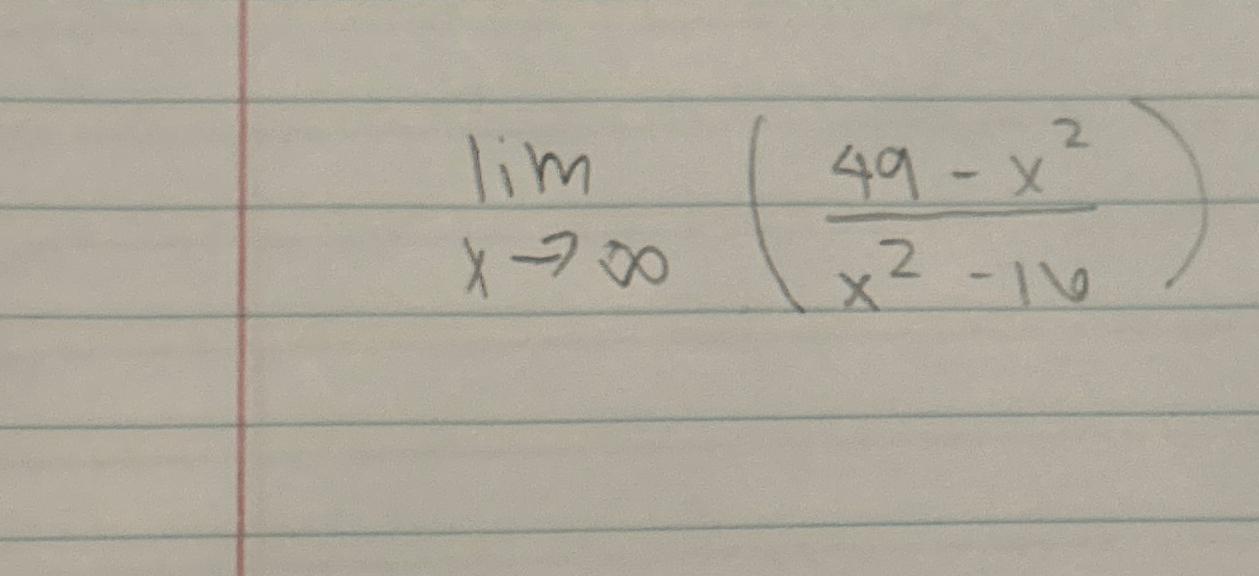 lim x→∞ ( (49 - x²) / (x² - 16) )